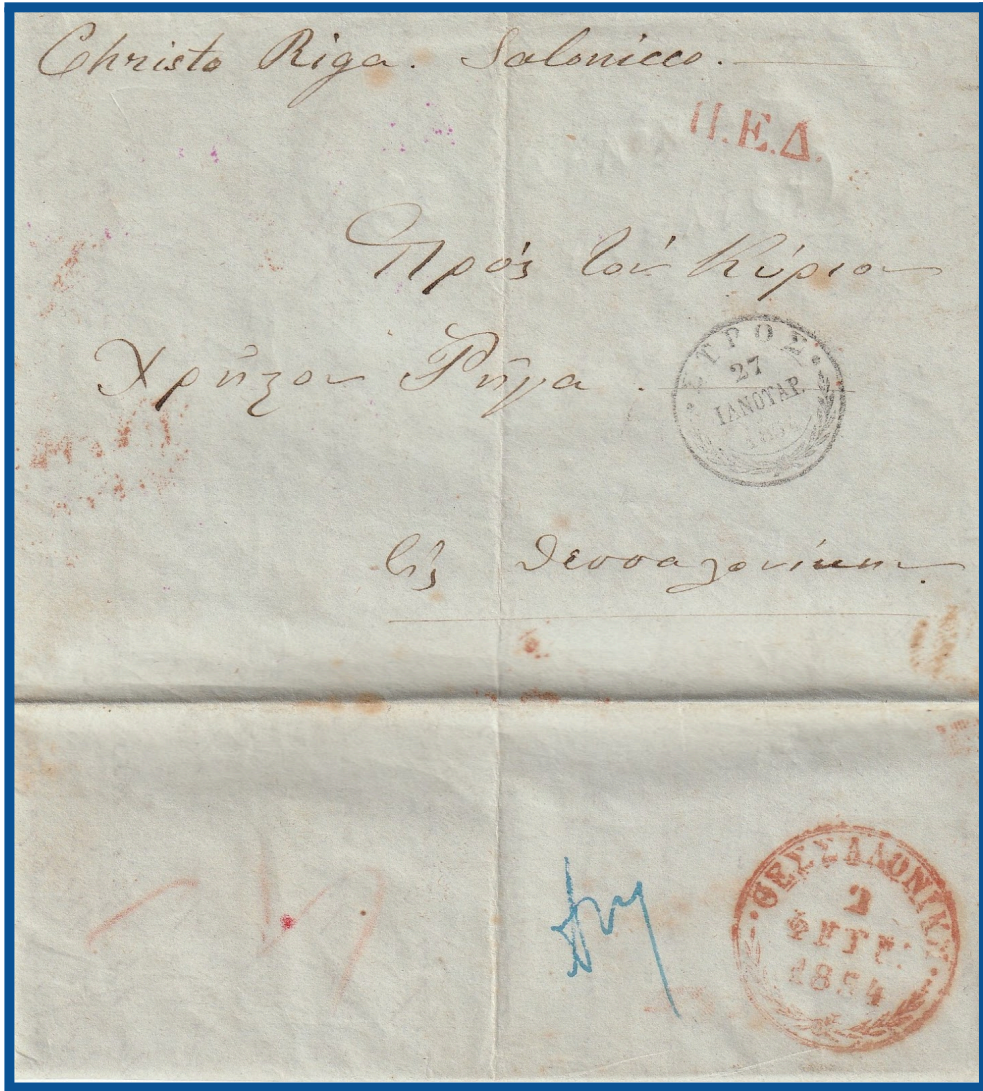 Christo Riga. Salonicco.
Π.Ε.Δ.
Πρός τόν Κύριον
Χρῆςον Ῥήγα.
ΣΥΡΟΣ
27
ΙΑΝΟΥΑΡ.
Εἰς Θεσσαλονίκην
ΘΕΣΣΑΛΟΝΙΚΗ
2
ΦΕΒΡ.
1854